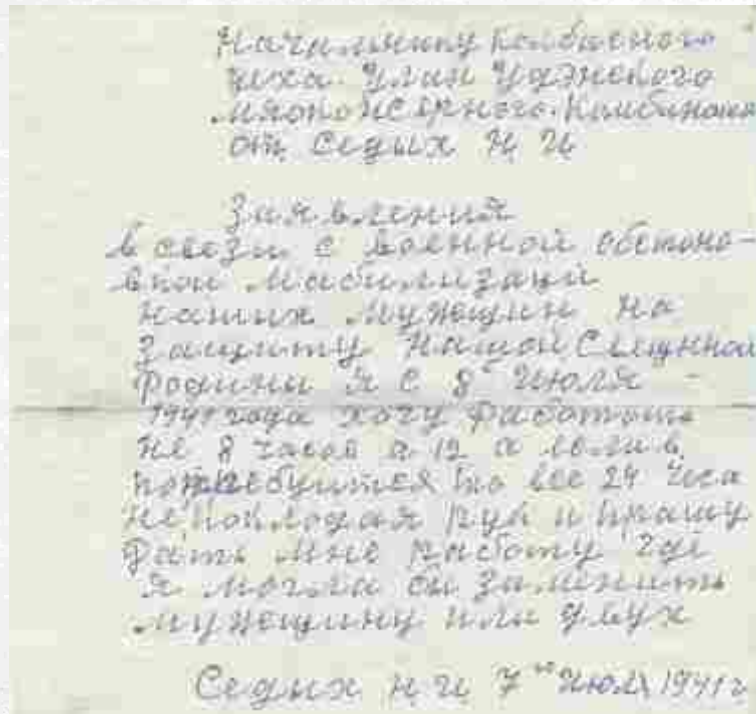 Начальнику Колбасного
цеха Улан Удэнского
мясоконсервного Комбината
от Седых Н И
Заявления
в связи с военной обстано-
вкой мабилизаций
наших мужщин на
защиту нашой Священной
Родины я с 8 Июля
1941 года хочу работать
не 8 часов а 12 а если
потребуится то все 24 часа
не покладая рук и прашу
дать мне работу где
я могла бы заменить
мужещину или двух
Седых Н И 7 го Июля 1941 г